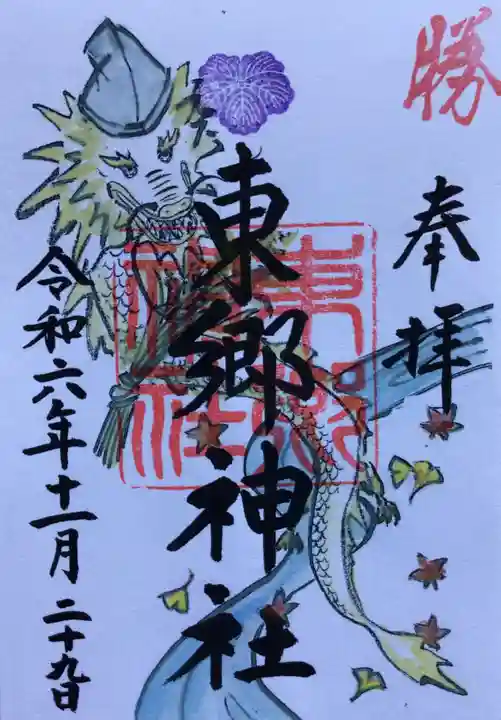 勝
奉拝
東郷神社
東郷神社
令和六年十一月二十九日